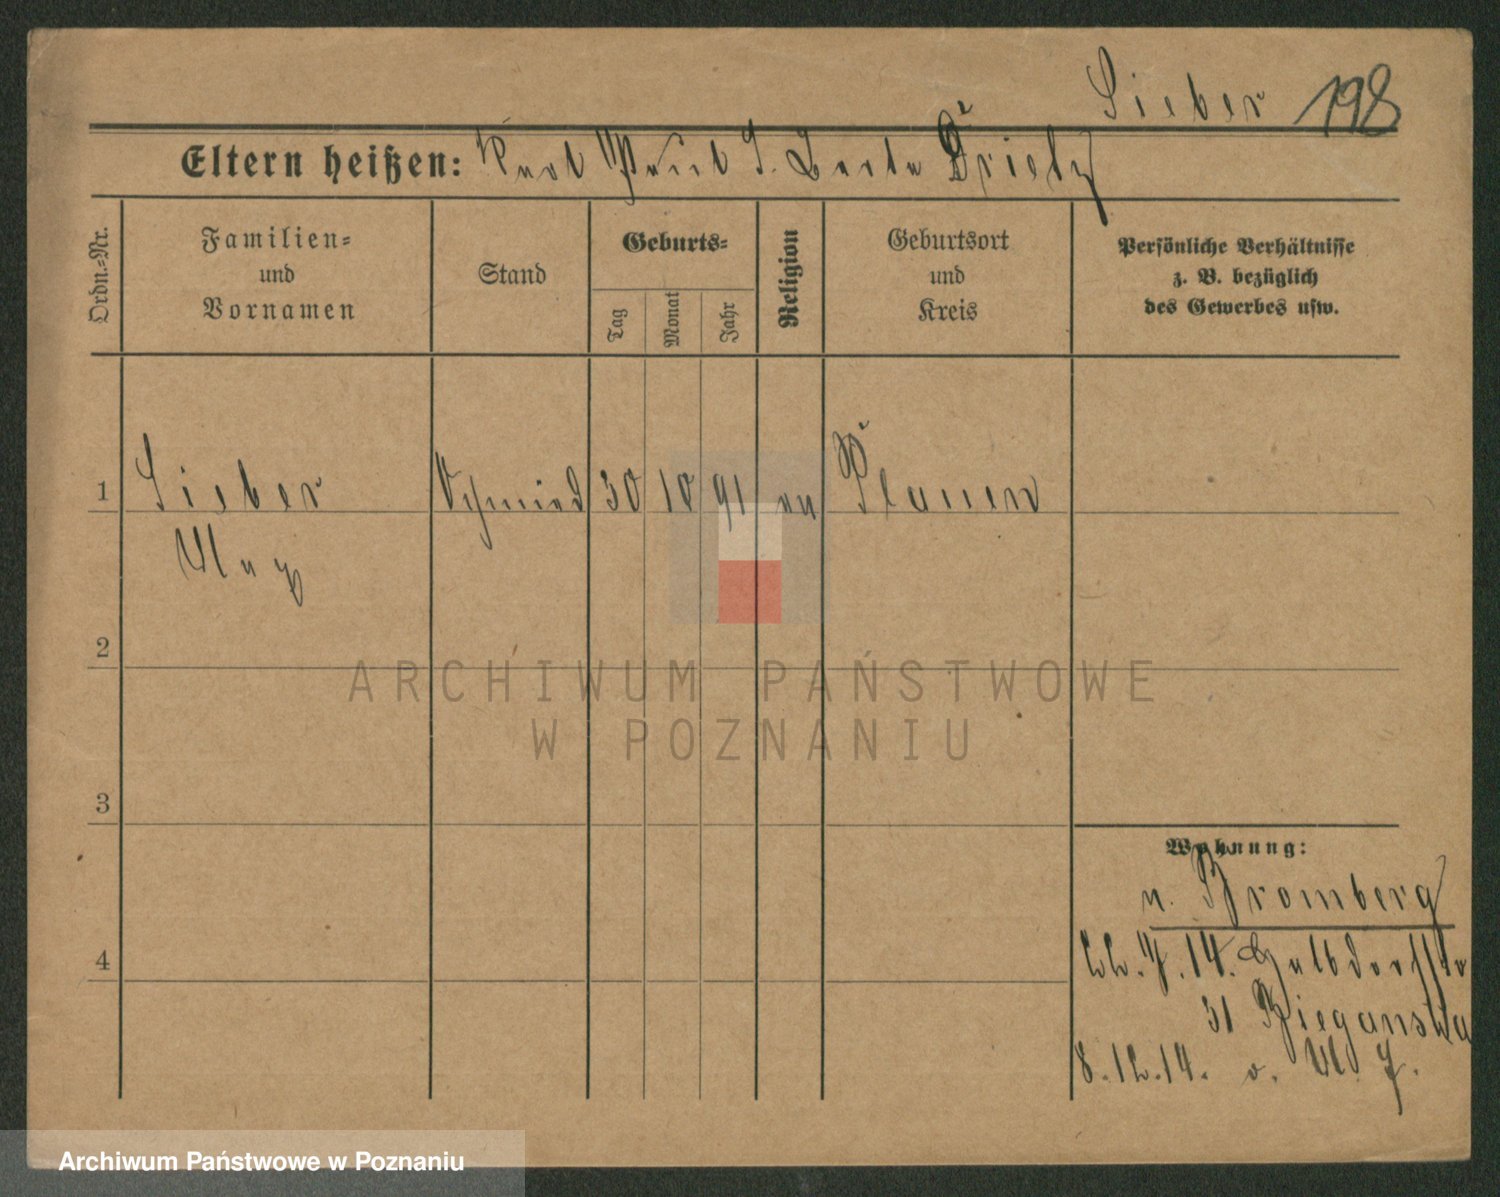 Sieber 198
Eltern heißen: Karl Paul S. Berta
Ordn.-Nr.
Familien-
und
Vornamen
Stand
Geburts-
Tag
Monat
Jahr
Religion
Geburtsort
und
Kreis
Persönliche Verhältnisse
z. B. bezüglich
des Gewerbes usw.
1 Sieber Schmied 30 10 91 ev Plauen
Max
2
3
4
Wohnung:
n. Bromberg
14. Halbdorfstr
31 Bieganska
8.12.14. v.
ARCHIWUM PAŃSTWOWE
W POZNANIU
Archiwum Państwowe w Poznaniu